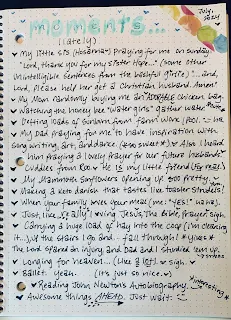 moments...
(lately)
July, 2024
♥ My little sis (Hosanna) praying for me on Sunday
"Lord, thank you for my sister Hope..." (some other
unintelligible sentences from the bashful girlie) "... and,
Lord, please help her get a Christian husband. Amen!"
♥ My Mom randomly buying me an *ADORABLE* chicken bag.
♥ Watching the honey bee "water girls" gather water
♥ Getting loads of sunburn from farm work (lol). :- ha
♥ My Dad praying for me to have inspiration with
song writing, art, and dance. (*soo sweet*) ♥ Also I heard
him praying a lovely prayer for our future husbands!
♥ Cuddles from Roo ♥ He is my little friend (for real)
♥ My Mammoth Sunflowers opening up *too pretty.
♥ Making a keto danish that tastes like toaster strudels
♥ When your family loves your meal (me: "YES!" haha).
♥ Just, like, *really* loving Jesus, The Bible, prayer. *sigh.
♥ Carrying a huge load of hay into the coop (I'm cleaning
it...). Up the stairs I go and - fall through! *yikes*
The Lord spared an injury and Dad and I studied 'em up.
♥ Longing for heaven... (like a lot). *sigh.
♥ Ballet. yeah. (It's just so nice.♥)
♥ Reading John Newton's Autobiography.
*interesting*
♥ Awesome things AHEAD. Just wait. :-)